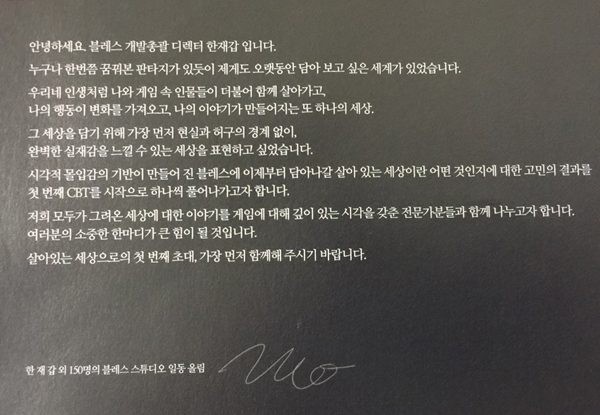 안녕하세요. 블레스 개발총괄 디렉터 한재갑 입니다.
누구나 한번쯤 꿈꿔본 판타지가 있듯이 제게도 오랫동안 담아 보고 싶은 세계가 있었습니다.
우리네 인생처럼 나와 게임 속 인물들이 더불어 함께 살아가고,
나의 행동이 변화를 가져오고, 나의 이야기가 만들어지는 또 하나의 세상.
그 세상을 담기 위해 가장 먼저 현실과 허구의 경계 없이,
완벽한 실재감을 느낄 수 있는 세상을 표현하고 싶었습니다.
시각적 몰입감의 기반이 만들어 진 블레스에 이제부터 담아나갈 살아 있는 세상이란 어떤 것인지에 대한 고민의 결과를
첫 번째 CBT를 시작으로 하나씩 풀어나가고자 합니다.
저희 모두가 그려온 세상에 대한 이야기를 게임에 대해 깊이 있는 시각을 갖춘 전문가분들과 함께 나누고자 합니다.
여러분의 소중한 한마디가 큰 힘이 될 것입니다.
살아있는 세상으로의 첫 번째 초대, 가장 먼저 함께해 주시기 바랍니다.
한 재 갑 외 150명의 블레스 스튜디오 일동 올림